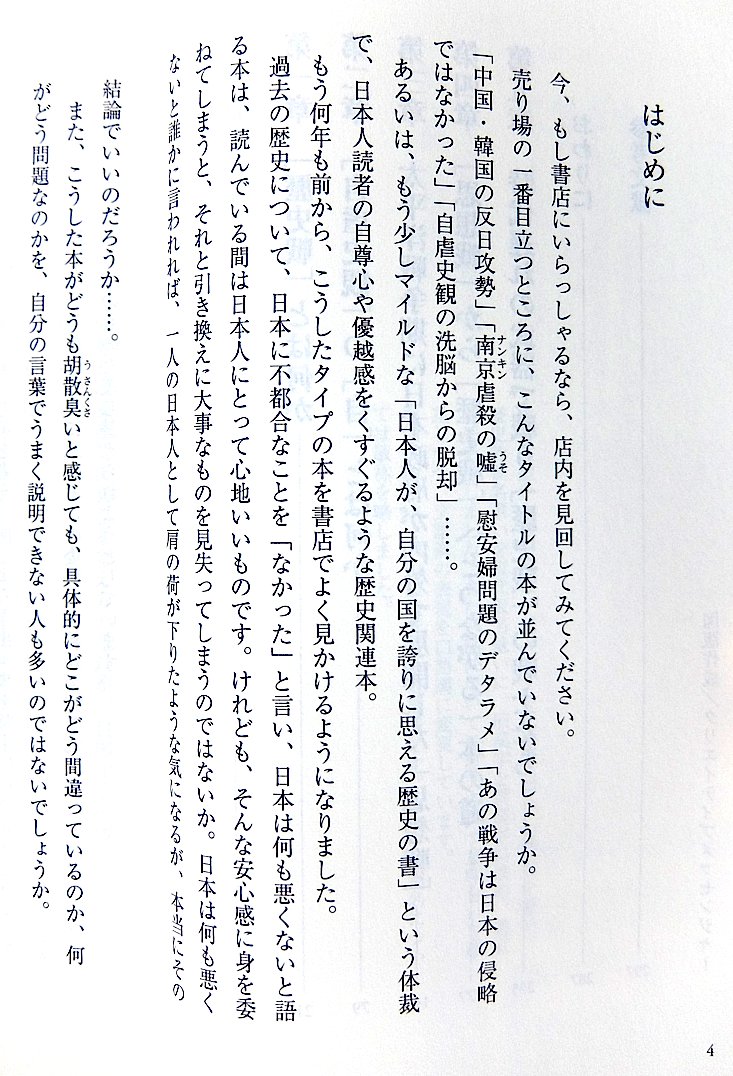 はじめに
今、もし書店にいらっしゃるなら、店内を見回してみてください。
売り場の一番目立つところに、こんなタイトルの本が並んでいないでしょうか。
「中国・韓国の反日攻勢」「南京虐殺の嘘」「慰安婦問題のデタラメ」「あの戦争は日本の侵略
ナンキン
うそ
ではなかった」「自虐史観の洗脳からの脱却」……。
あるいは、もう少しマイルドな「日本人が、自分の国を誇りに思える歴史の書」という体裁
で、日本人読者の自尊心や優越感をくすぐるような歴史関連本。
もう何年も前から、こうしたタイプの本を書店でよく見かけるようになりました。
過去の歴史について、日本に不都合なことを「なかった」と言い、日本は何も悪くないと語
る本は、読んでいる間は日本人にとって心地いいものです。けれども、そんな安心感に身を委
ねてしまうと、それと引き換えに大事なものを見失ってしまうのではないか。日本は何も悪く
ないと誰かに言われれば、一人の日本人として肩の荷が下りたような気になるが、本当にその
結論でいいのだろうか……。
また、こうした本がどうも胡散臭いと感じても、具体的にどこがどう間違っているのか、何
うさんくさ
がどう問題なのかを、自分の言葉でうまく説明できない人も多いのではないでしょうか。
4